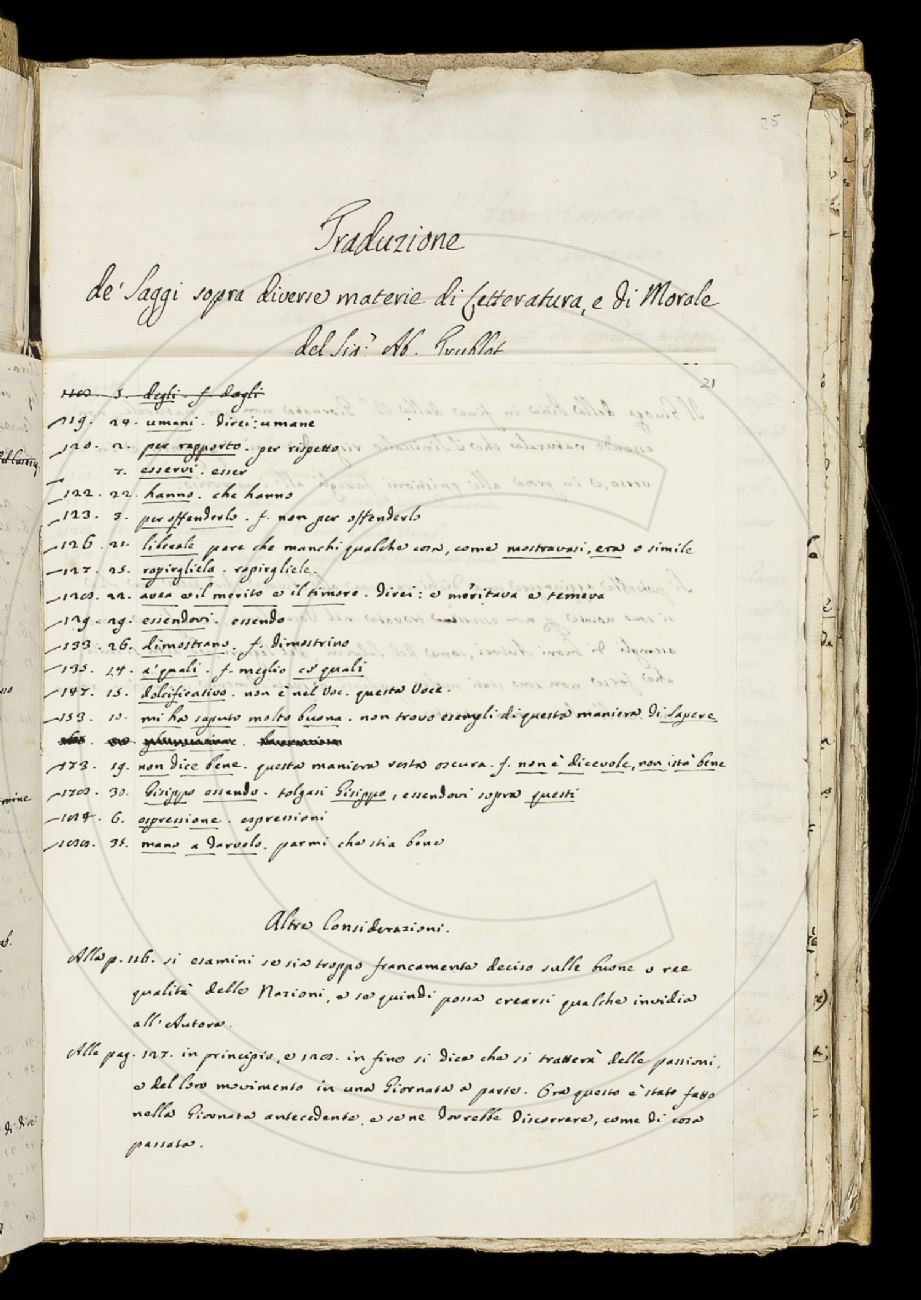 25
Traduzione
de' Saggi sopra diverse materie di Letteratura, e di Morale
del Sig.r Ab. Trublet
21
5. degli. f. dagli
119. 24. umani. direi: umane
120. 2. per rapporto. per rispetto
7. esservi. esser
122. 22. hanno. che hanno
123. 3. per offenderlo. f. non per offenderlo
126. 21. liberale pare che manchi qualche cosa, come mostravasi, era o simile
127. 25. rapirgliela. rapirgliele.
128. 22. avea e il merito e il timore. direi: e meritava e temeva
129. 29. essendovi. essendo
133. 26. dimostrano. f. dimostrino
135. 14. a' quali. f. meglio co' quali
147. 15. dolcificativo. non è nel Voc. questa Voce.
153. 10. mi ha saputo molto buona. non trovo esempli di questa maniera di Sapere
173. 19. non dice bene. questa maniera resta oscura. f. non è dicevole, non istà bene
178. 30. Gisippo essendo. tolgasi Gisippo, essendovi sopra questi
184. 6. espressione. espressioni
188. 31. mano a darvelo. parmi che stia bene
Altre Considerazioni.
Alla p. 116. si esamini se sia troppo francamente deciso sulle buone o ree
qualità delle Nazioni, e se quindi possa crearsi qualche invidia
all'Autore.
Alla pag. 127. in principio, e 128. in fine si dice che si tratterà delle passioni,
e del loro movimento in una Giornata a parte. Ora questo è stato fatto
nella Giornata antecedente, e se ne dovrebbe discorrere, come di cosa
passata.